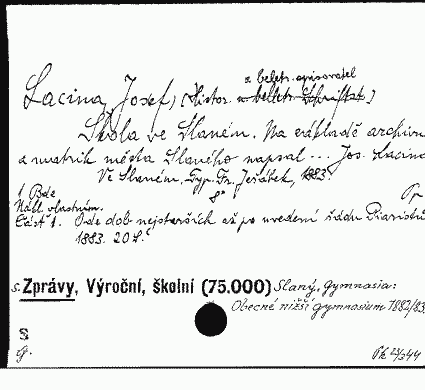 a beletr. spisovatel
Lacina, Josef, (Histor. u. belletr. Schriftst.)
Škola ve Slaném. Na základě archivu
a matrik města Slaného napsal ... Jos. Lacina
Ve Slaném. Typ. Fr. Jeřábek, 1883.
1 Bde 8° Pp
Nákl. vlastním.
Část 1. Ode dob nejstarších až po uvedení řádu Piaristů
1883. 20 S.
s. Zprávy, Výroční, školní (75.000) Slaný, Gymnasia:
Obecné nižší gymnasium 1882/83.
S
g.